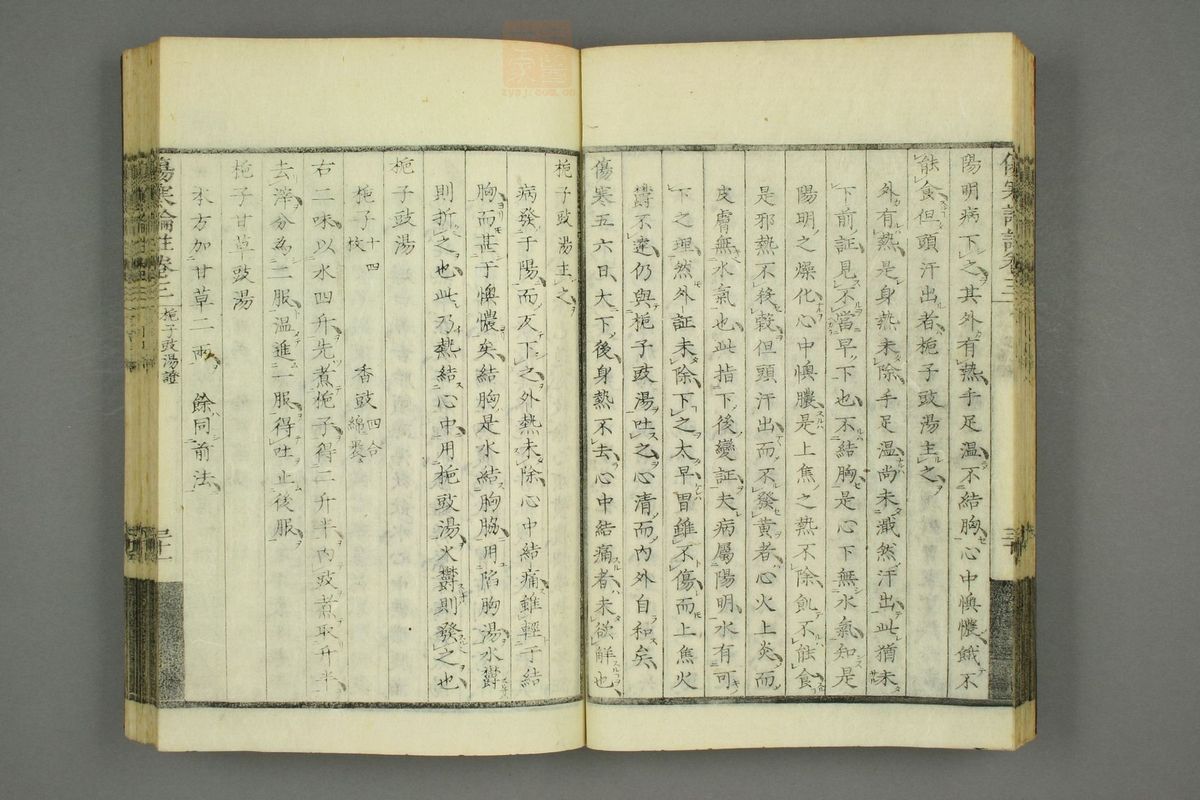 陽明病下之其外有熱手足溫不結胸心中懊憹餓不
能食但頭汗出者梔子豉湯主之
外有熱是身熱未除手足溫尚未濈然汗出此猶未
下前証見不當早下也不結胸是心下無水氣知是
陽明之燥化心中懊憹是上焦之熱不除飢不能食
是邪熱不殺穀但頭汗出而不發黃者心火上炎而
皮膚無水氣也此指下後變証夫病屬陽明水有可
下之理然外証未除下之太早胃雖不傷而上焦火
鬱不達仍與梔子豉湯吐之心清而內外自和矣
傷寒五六日大下後身熱不去心中結痛者未欲解也
梔子豉湯主之
病發于陽而反下之外熱未除心中結痛雖輕于結
胸而甚于懊憹矣結胸是水結胸脇用陷胸湯水鬱
則折之也此乃熱結心中用梔豉湯火鬱則發之也
梔子豉湯
梔子十四枚 香豉四合綿裹
右二味以水四升先煮梔子得二升半內豉煮取升半
去滓分為二服溫進一服得吐止後服
梔子甘草豉湯
本方加甘草二兩 餘同前法
傷寒論註卷三 梔子豉湯證